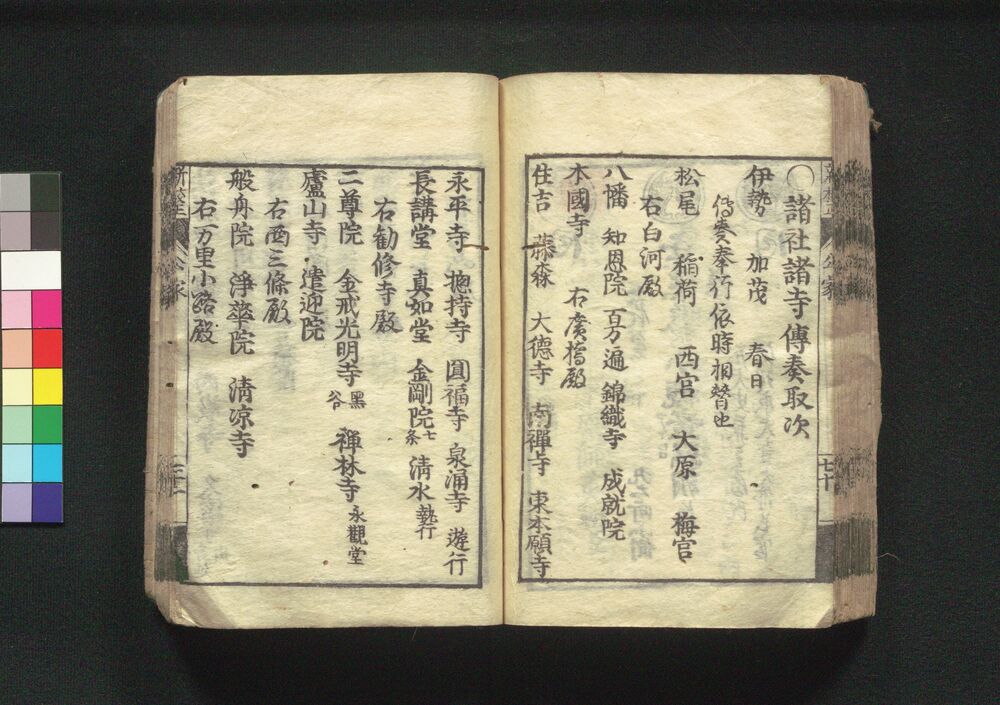 ○諸社諸寺傳奏取次
伊勢 加茂 春日
傳奏奉行依時相替也
松尾 稲荷 西宮 大原 梅宮
右白河殿
八幡 知恩院 百万遍 錦織寺 成就院
本國寺 右廣橋殿
住吉 藤森 大德寺 南禪寺 東本願寺
永平寺 揔持寺 圓福寺 泉涌寺 遊行
長講堂 真如堂 金剛院七条 清水執行
右勧修寺殿
二尊院 金戒光明寺黒谷 禅林寺永觀堂
廬山寺 遣迎院
右西三條殿
般舟院 淨華院 清凉寺
右万里小路殿
公家
公家